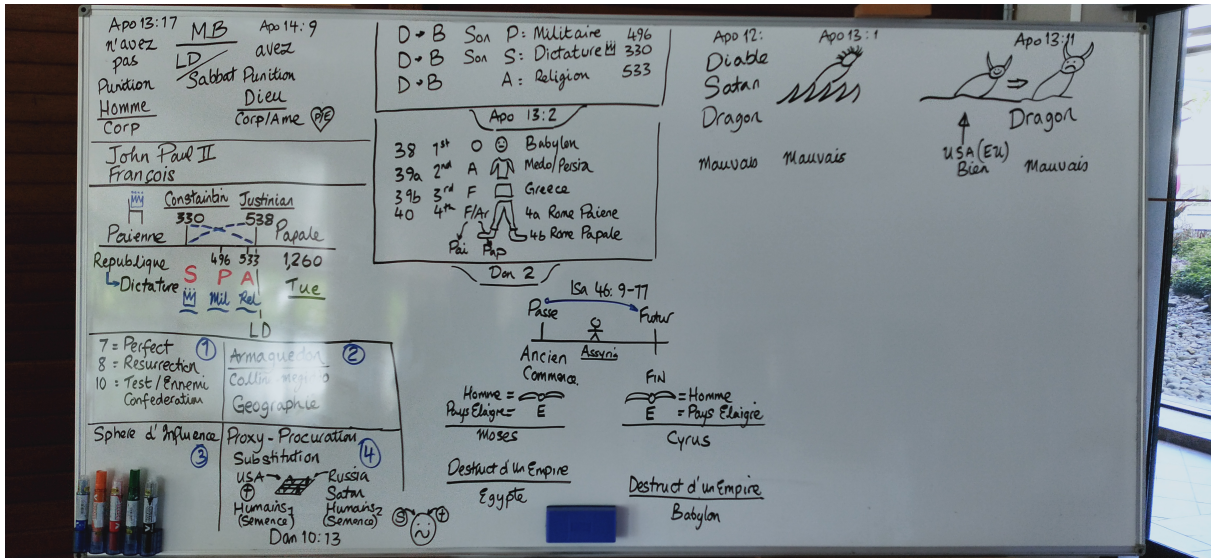 Apo 13:17
M.B
Apo 14:9
n'avez
pas
LD
Sabbat
avez
Punition
Homme
Corp
Punition
Dieu
Corp/Ame
P/E
John Paul II
François
Constaintin
Justinian
330
538
Paienne
Papale
Republique
Dictature
496
533
1,260
S P A
Mil
Rel
Tue
LD
7 = Perfect
8 = Resurrection
10 = Test/Ennemi
Confederation
1
Armaguedon
2
Geographie
Sphere d'Influence
3
Proxy-Procuration
Substitution
4
USA
Russia
Satan
Humains1
(Semence)
Humains2
(Semence)
Dan 10:13
S
D→B Son P: Militaire 496
D→B Son S: Dictature 330
D→B A: Religion 533
Apo 13:2
38 1st O Babylon
39a 2nd A Medo/Persia
39b 3rd F Greece
40 4th F/Ar 4a Rome Paiene
4b Rome Papale
Pai
Pap
Dan 2
Isa 46:9-77
Passe
Futur
Assyria
Ancien
Commence
FIN
Homme =
Pays Elaigre=
E
Moses
= Homme
E = Pays Elaigre
Cyrus
Destruct d'un Empire
Egypte
Destruct d'un Empire
Babylon
Apo 12:
Diable
Satan
Dragon
Mauvais
Apo 13:1
Mauvais
Apo 13:11
Dragon
USA (EU)
Bien
Mauvais